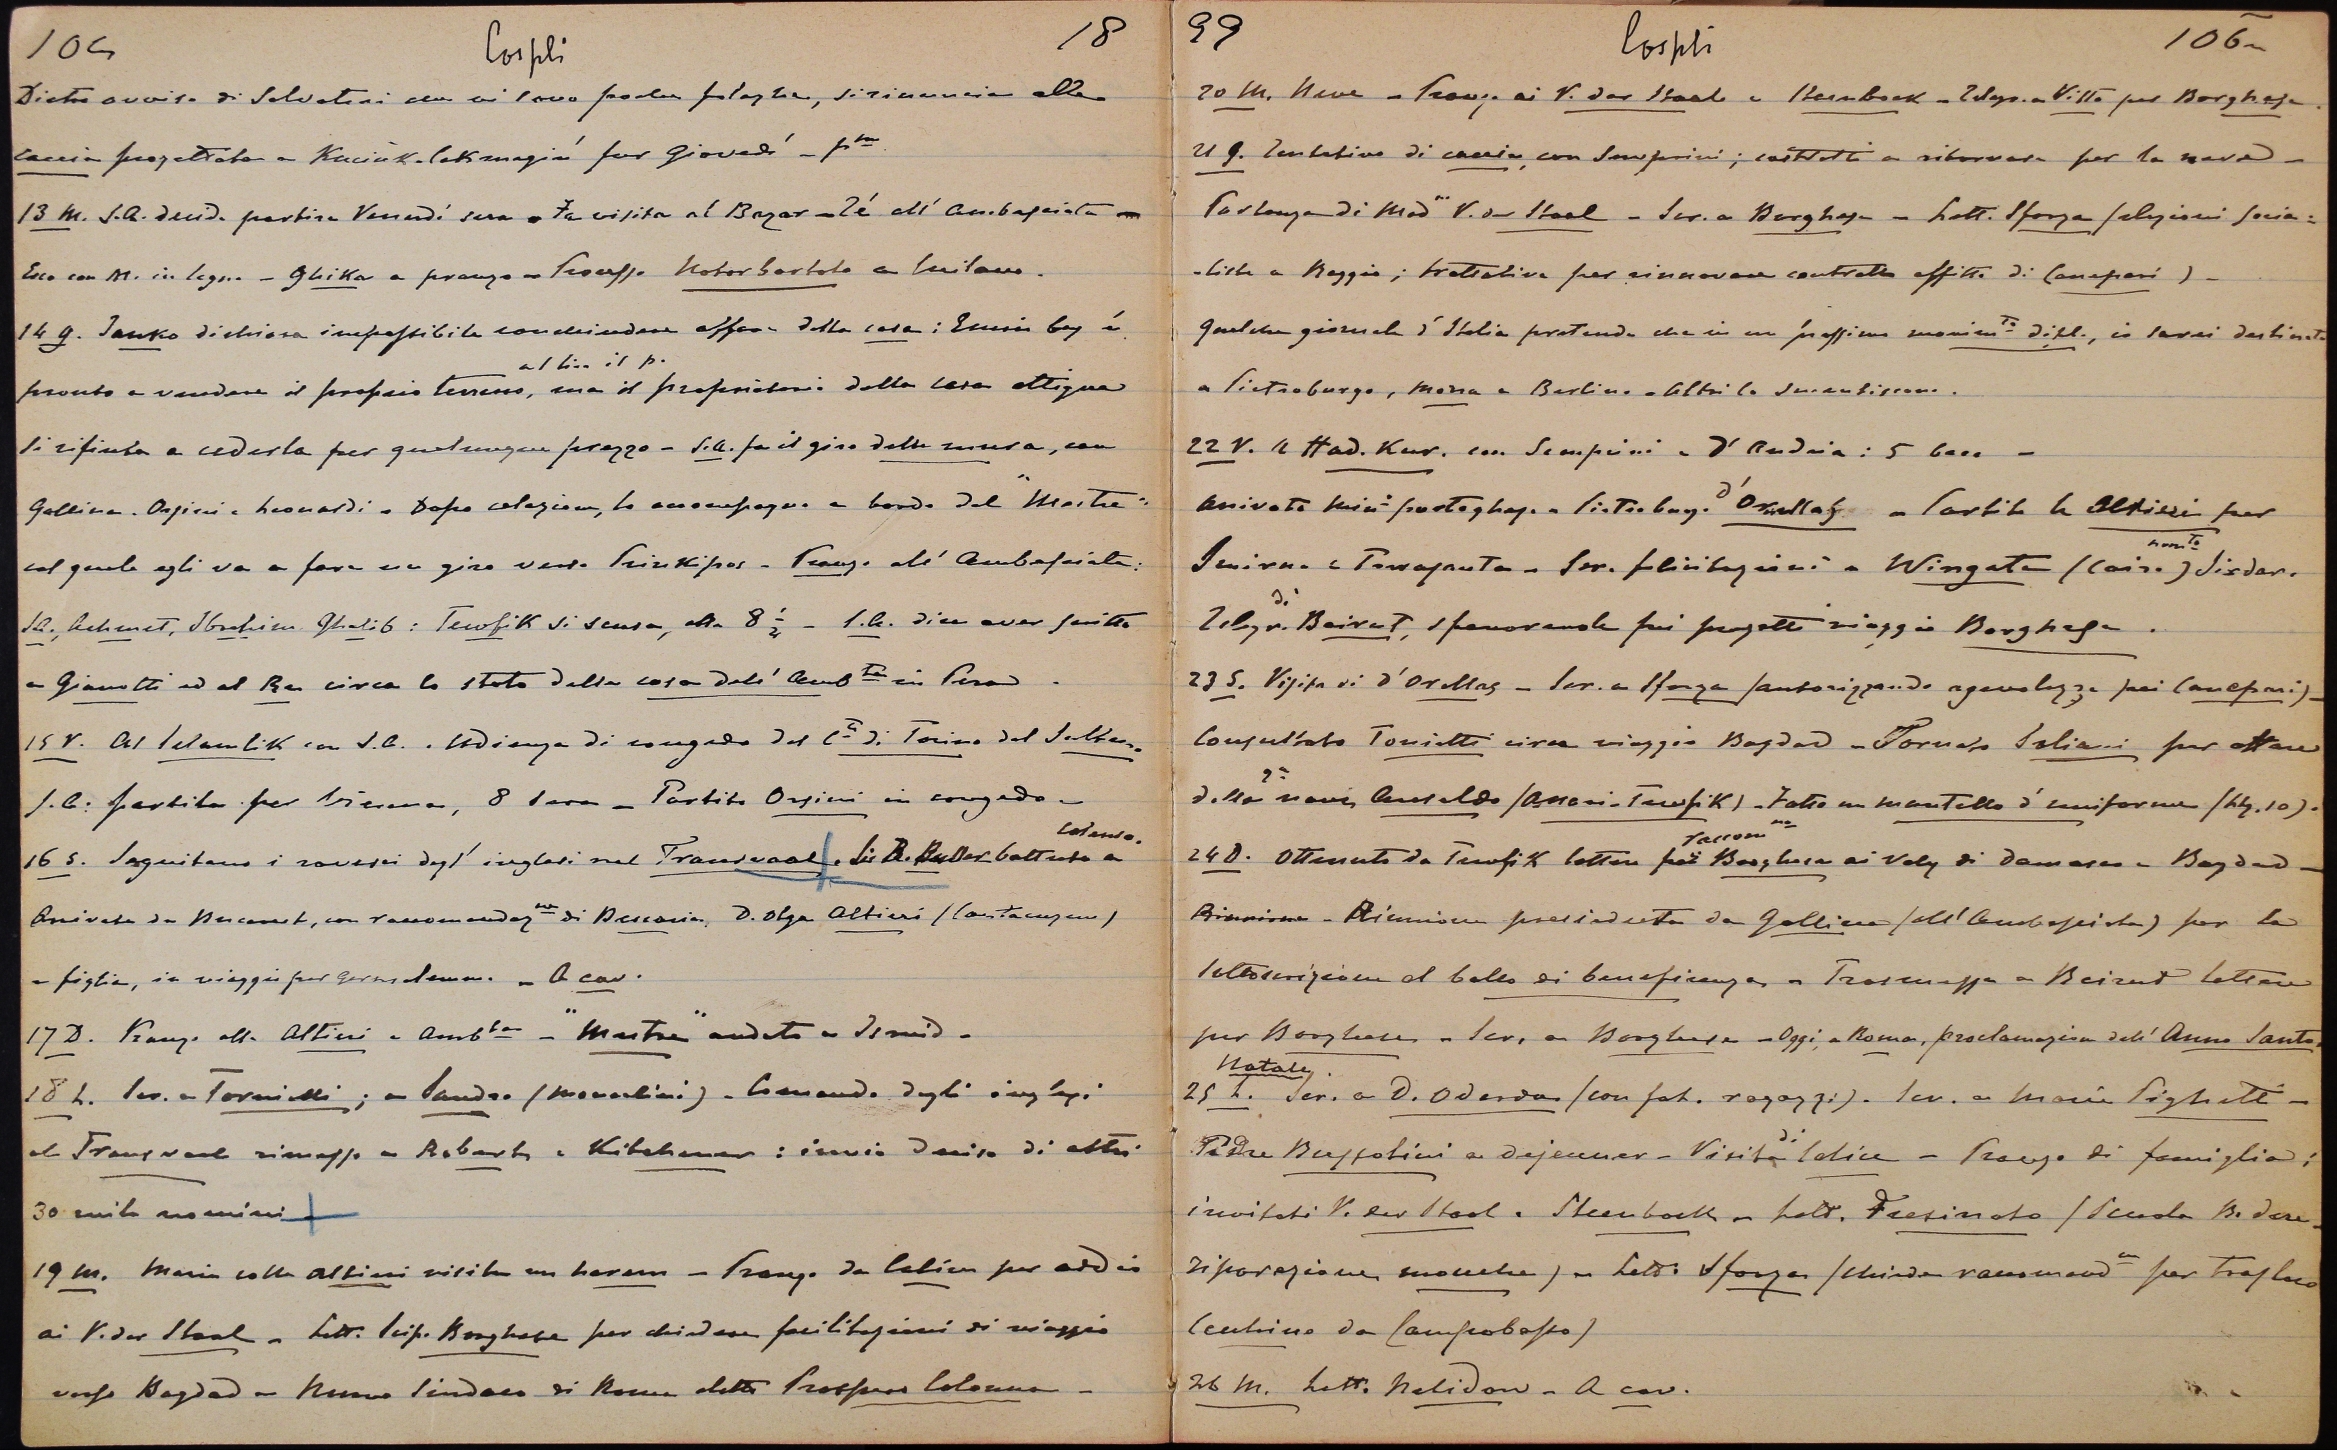 104 Cospli 18
Dietro avviso di Salvatori che vi sono poche folaghe, si rinuncia alla
caccia progettata a Kuciuk-Cekmegié per Giovedì - pm
13 M. S.A. decide partire Venerdì sera - Fa visita al Bazar - Té all'Ambasciata -
Esco con M. in legno - Ghika a pranzo - Promosso Notarbartolo a Milano.
14 g. Janko dichiara impossibile conchiudere affare della casa: Emin bey è
al lira il p.
pronto a vendere il proprio terreno, ma il proprietario della casa attigua
si rifiuta a cederla per qualunque prezzo - S.A. fa il giro delle mura, con
Gallina - Orsini e Leonardi - Dopo colazione, lo accompagno a bordo del "Mestre"
col quale egli va a fare un giro verso Prinkipos - Pranzo all'Ambasciata:
S.A., Achmet, Ibrahim Ghalib: Tewfik si scusa, alle 8 ½ - S.A. dice aver scritto
a Gianotti ed al Re circa lo stato della casa dell'Ambta in Pera -
15 V. Al Selamlik con S.A. - Udienza di congedo del Cte di Torino dal Sultano
S.A. partita per Vienna, 8 sera - Partito Orsini in congedo -
Colenso.
16 S. Seguitano i rovesci degl'inglesi nel Transvaal - Sir R. Buller battuto a
Arrivata da Bucarest, con raccomandazne di Beccaria, D. Olga Altieri (Cantacuzeno)
e figlia, in viaggio per Gerusalemme. - A cav.
17 D. Pranzo alle Altieri e Ambta - "Mestre" andato a Ismid -
18 L. Scr. a Tornielli; a Sandro (Marcellini) - Comando degli inglesi
al Transvaal rimesso a Roberts e Kitchener: invio deciso di altri
30 mila uomini
19 M. Maria colle Altieri visita un harem - Pranzo da Calice per addio
ai V. der Staal - Lett. Scip. Borghese per chiedere facilitazioni di viaggio
verso Bagdad - Nuovo Sindaco di Roma eletto Prospero Colonna -
99 Cospli 105
20 M. Neve - Pranzo ai V. der Staal e Steenbock - Telegr. a Vitto per Borghese.
21 g. Tentativo di caccia, con Semprini; costretti a ritornare per la neve -
Partenza di Mad V. der Staal - Scr. a Borghese - Lett. Sforza (elezioni socia-
-liste a Reggio; trattative per rinnovare contratto affitto di Canepari) -
Qualche giornale d'Italia pretende che in un prossimo movimto dipl., io sarei destinato
a Pietroburgo, Morra a Berlino - Altri lo smentiscono.
22 V. A Had. Kur. con Semprini e D'Andria: 5 becc -
Arrivato Mino portoghese a Pietroburgo d'Ornellas - Partite le Altieri per
nomto
Smirne e Terrasanta - Scr. felicitazioni a Wingate (Cairo) Sirdar.
Telegr. di Beirut, sfavorevole pei progetti viaggio Borghese.
23 S. Visita di d'Ornellas - Scr. a Sforza (autorizzando agevolezze pei Canepari) -
Consultato Tonietti circa viaggio Bagdad - Tornato Soliani per affare
della 2a nave Ansaldo (Assari-Tewfik) - Fatto un mantello d'uniforme (Ltq. 10).
raccomne
24 D. Ottenuto da Tewfik lettere per Borghese ai Valy di Damasco e Bagdad -
Riunione - Riunione presieduta da Gallina (all'Ambasciata) per la
sottoscrizione al ballo di beneficenza - Trasmesse a Beirut lettere
per Borghese - Scr. a Borghese - Oggi, a Roma, proclamazione dell'Anno Santo.
Natale
25 L. Scr. a D. Oderda (con fot. ragazzi) - Scr. a Maria Pighetti -
Padre Bussolini a dejeuner - Visita di Calice - Pranzo di famiglia:
invitati V. der Staal e Steenbock - Lett. Fresinato (Scuola B. dere-
riparazione monache) - Lett. Sforza (chiede raccomandne per trasloco
Centrino da Campobasso)
26 M. Lett. Nelidow - A cav.